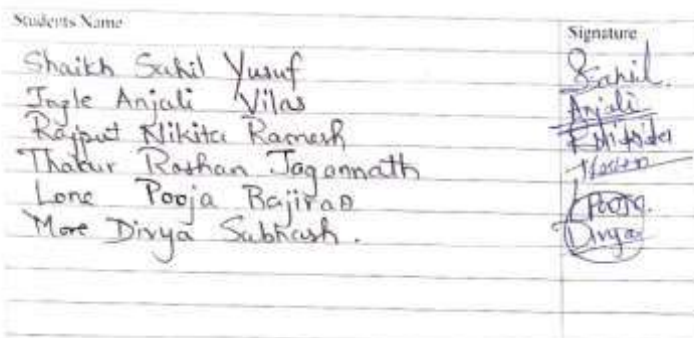 Students Name Signature
Shaikh Sahil Yusuf Sahil.
Ingle Anjali Vilas Anjali
Rajput Nikita Ramesh
Thakur Roshan Jagannath
Lone Pooja Bajirao Pooja.
More Divya Subhash. Divya